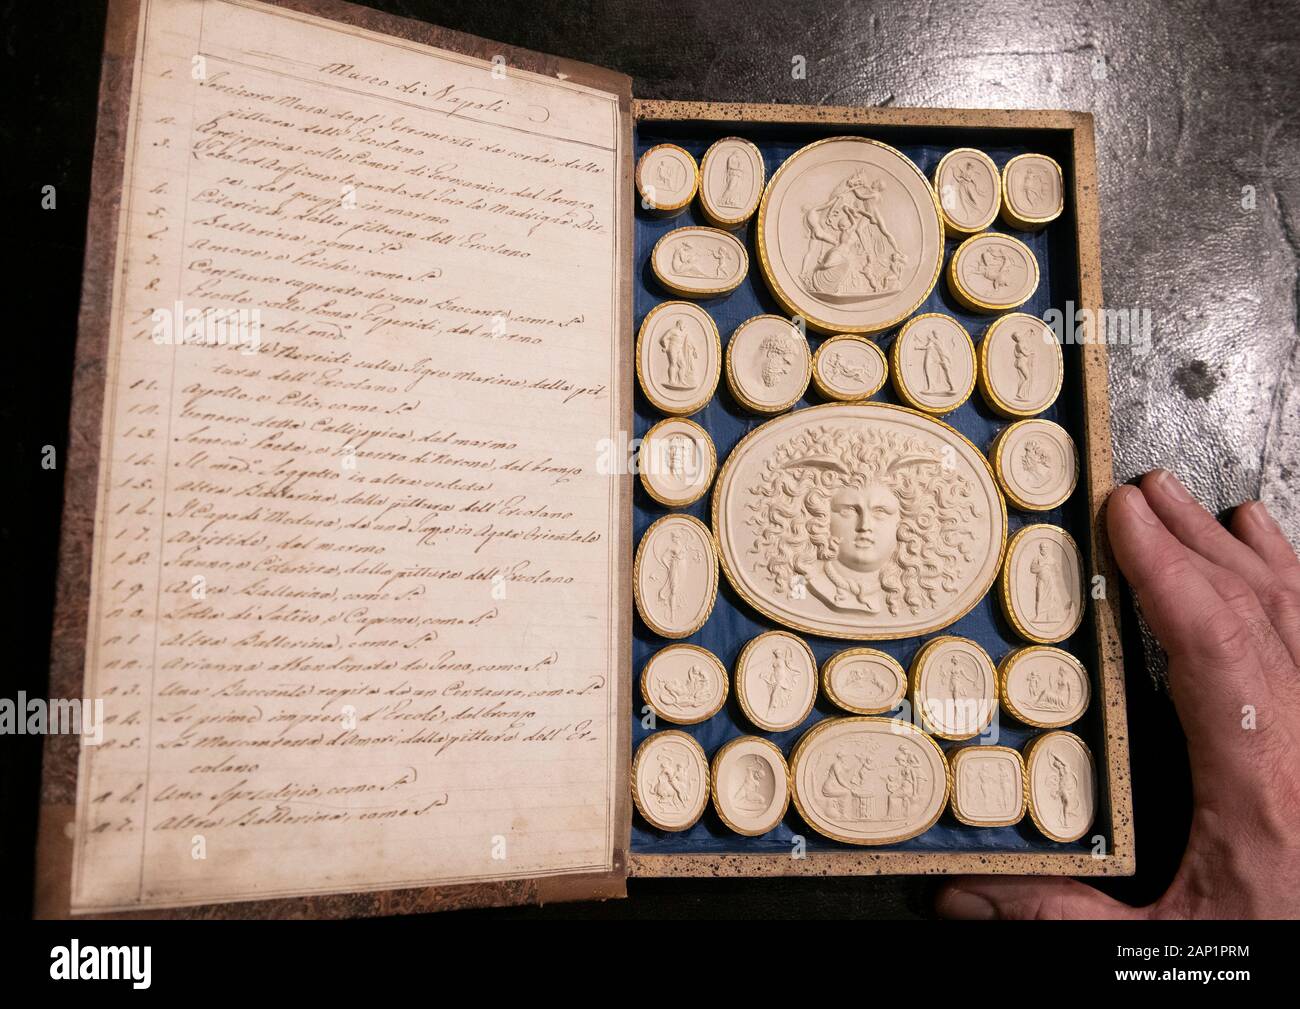 Museo di Napoli
1. Terpsicore Musa degl'Istromenti da corda, dalla
pittura dell'Ercolano
2. Agrippina colle Ceneri di Germanico, dal bronzo
3. Zeto, ed Anfione legando al Toro la Madrigna Dir-
ce, dal gruppo in marmo
4. Citerista, dalla pittura dell'Ercolano
5. Ballerina, come Sa.
6. Amore, e Psiche, come Sa.
7. Centauro cavalcato da una Baccante, come Sa.
8. Ercole colle Poma Esperidi, dal marmo
9. Il busto del medo.
10. Una delle Nereidi sulla Tigre Marina, dalla pit-
tura dell'Ercolano
11. Apollo, e Clio, come Sa.
12. Venere della Callipigica, dal marmo
13. Seneca Poeta, e Maestro di Nerone, dal bronzo
14. Il medo. Soggetto in altra veduta
15. Altra Ballerina, dalla pittura dell'Ercolano
16. Il Capo di Medusa, da una Gema in Agata Orientale
17. Aristide, dal marmo
18. Fauno, e Citerista, dalla pittura dell'Ercolano
19. Altra Ballerina, come Sa.
20. Lotta di Satiro, e Caprone, come Sa.
21. Altra Ballerina, come Sa.
22. Arianna abbandonata da Teseo, come Sa.
23. Una Baccante rapita da un Centauro, come Sa.
24. Le prime imprese d'Ercole, dal bronzo
25. La Mercantessa d'Amori, dalla pittura dell'Er-
colano
26. Uno Sposalizio, come Sa.
27. Altra Ballerina, come Sa.
alamy
Image ID: 2AP1PRM
www.alamy.com